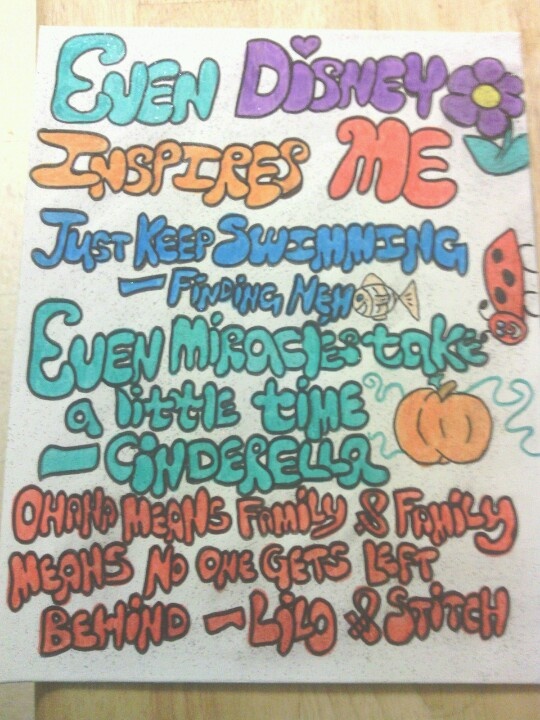 EVEN DISNEY
INSPIRES ME
JUST KEEP SWIMMING
— FINDING NEMO
EVEN MIRACLES take
a little time
— CINDERELLA
OHANA MEANS FAMILY & FAMILY
MEANS NO ONE GETS LEFT
BEHIND — LILO & STITCH